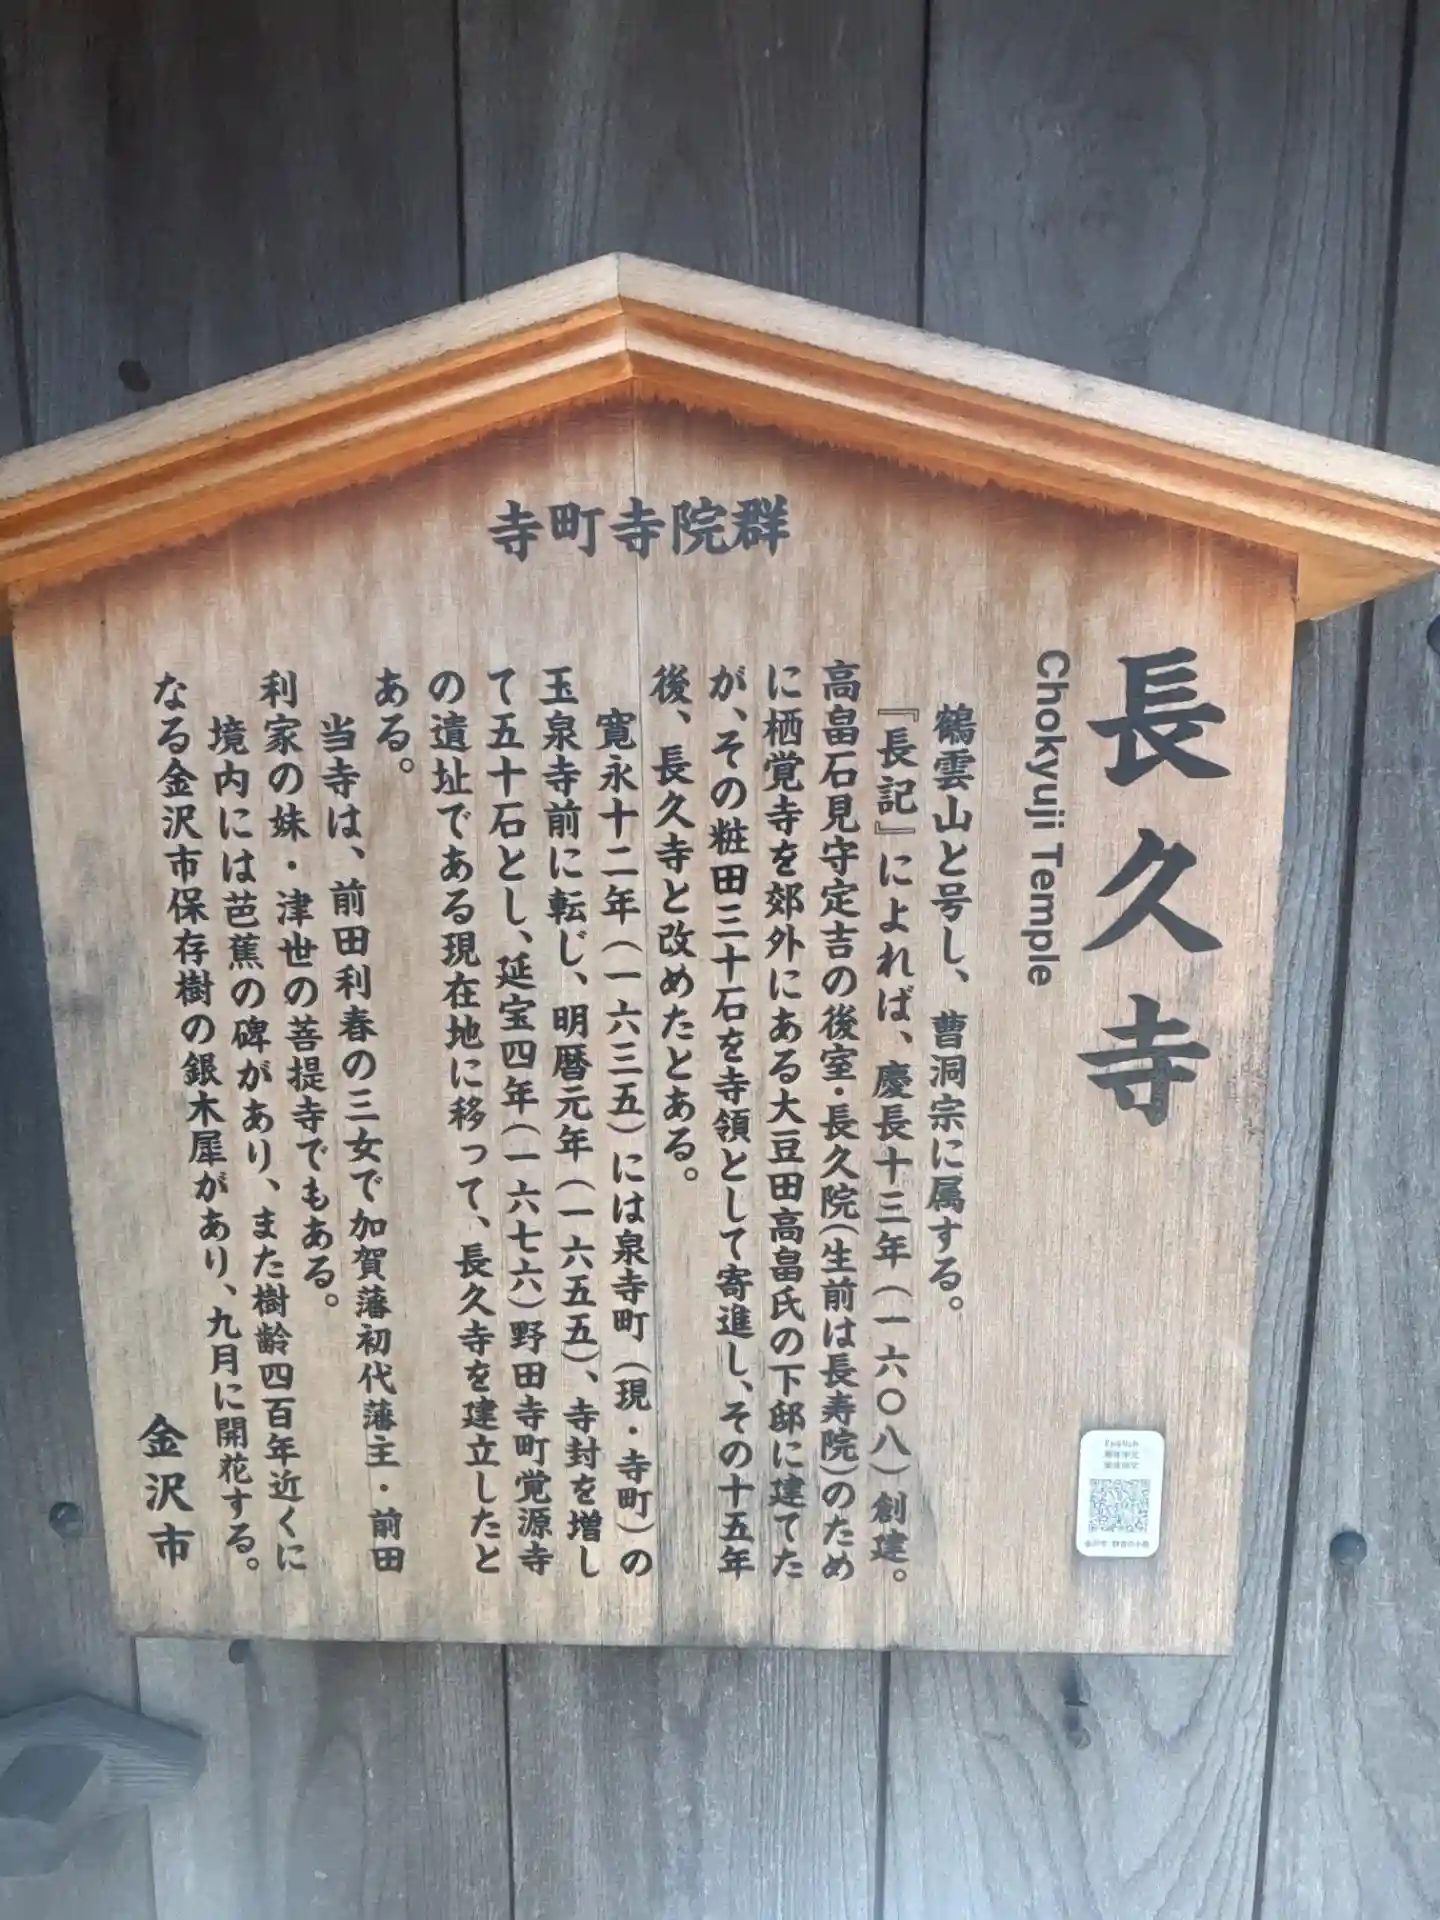 寺町寺院群
長久寺
Chokyuji Temple
鶴雲山と号し、曹洞宗に属する。
『長記』によれば、慶長十三年(一六〇八)創建。
高畠石見守定吉の後室・長久院(生前は長寿院)のため
に栖覚寺を郊外にある大豆田高畠氏の下邸に建てた
が、その粧田三十石を寺領として寄進し、その十五年
後、長久寺と改めたとある。
寛永十二年(一六三五)には泉寺町(現・寺町)の
玉泉寺前に転じ、明暦元年(一六五五)、寺封を増し
て五十石とし、延宝四年(一六七六)野田寺町覚源寺
の遺址である現在地に移って、長久寺を建立したと
ある。
当寺は、前田利春の三女で加賀藩初代藩主・前田
利家の妹・津世の菩提寺でもある。
境内には芭蕉の碑があり、また樹齢四百年近くに
なる金沢市保存樹の銀木犀があり、九月に開花する。
金沢市
English